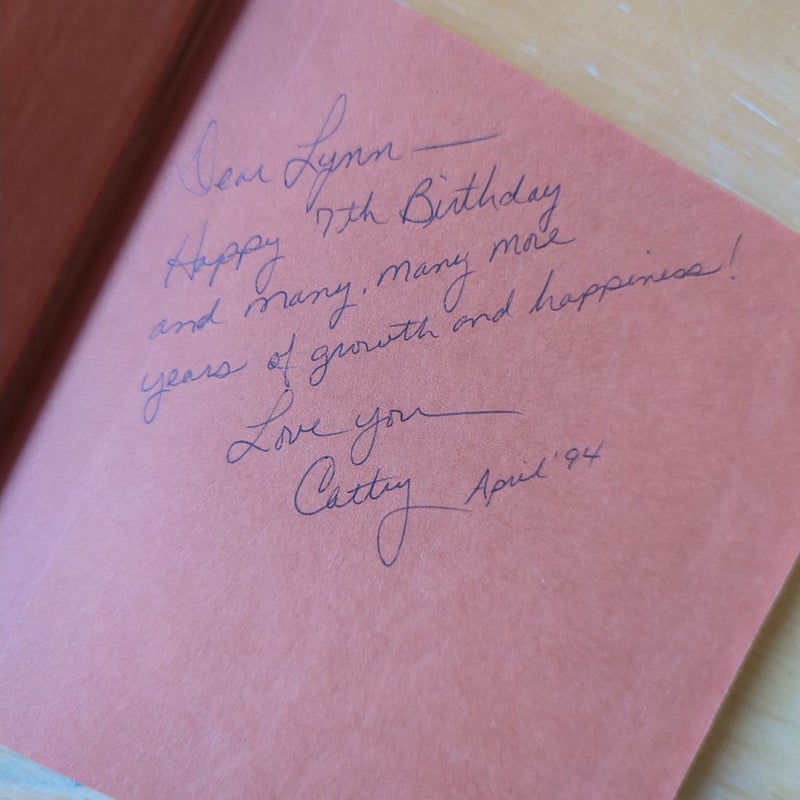 Dear Lynn —
Happy 7th Birthday
and many, many more
years of growth and happiness!
Love you —
Cattey April '94